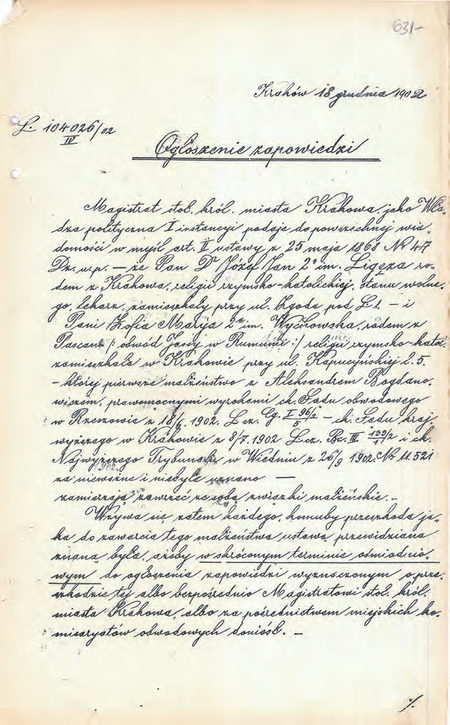 631-
Kraków 18 grudnia 1902
L. 104026/02
IV
Ogłoszenie zapowiedzi
Magistrat stol. król. miasta Krakowa, jako Wła-
dza polityczna I instancyi podaje do powszechnej wia-
domości w myśl art. II ustawy z 25 maja 1868 Nr 47
Dz. u. p. — że Pan Dr Józef Jan 2ga im. Ligęza ro-
dem z Krakowa, religii rzymsko-katolickiej, stanu wolne-
go, lekarz, zamieszkały przy ul. Zgoda pod L. 1 — i
Pani Zofia Marija 2ga im. Wychowska, rodem z
Pascani /: obwód Jassy w Rumunii :/ religii rzymsko-katol.
zamieszkała w Krakowie przy ul. Kapucyńskiej L. 5.
— której pierwsze małżeństwo z Aleksandrem Bogdano-
wiczem, prawomocnymi wyrokami ck. Sadu obwodowego
w Rzeszowie z 18/ 1902. L. cz. Cg. I 96/2 — ck. Sadu kraj.
5
wyższego w Krakowie z 8/7. 1902 L. cz. Bc. III 122/2 i ck.
Najwyższego Trybunału w Wiedniu z 26/9 1902 Nr 11.521
za nieważne i niebyłe uznano —
zamierzają zawrzeć ze sobą związki małżeńskie. —
Wzywa się zatem każdego, komuby przeszkoda ja-
ka do zawarcia tego małżeństwa ustawą przewidziana
znaną była, ażeby w skróconym terminie ośmiodnio-
wym do ogłoszenia zapowiedzi wyznaczonym o prze-
szkodzie tej albo bezpośrednio Magistratowi stol. król.
miasta Krakowa, albo za pośrednictwem miejskich ko-
misaryatów obwodowych doniósł. —
./.